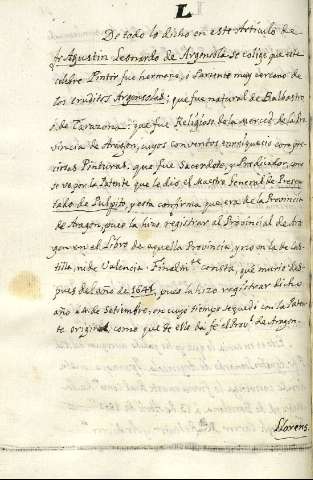 L
De todo lo dicho en este Artículo de
fr Agustin Leonardo de Argensola se colige que este
celebre Pintor fue hermano, ò Pariente muy cercano de
los eruditos Argensolas; que fue natural de Balbastro
ò de Tarazona; que fue Religioso de la Merced de la Pro
vincia de Aragon, cuyos conventos enriqueció con pre
ciosas Pinturas; que fue Sacerdote, y Predicador, como
se ve por la Patente que le dió el Maestro General de Presen
tado de Pulpito, y esta confirma, que era de la Provincia
de Aragon, pues la hizo registrar al Provincial de Ara
gon en el Libro de aquella Provincia, y no en la de Cas
tilla, ni de Valencia. Finalm.te consta, que murió des
pues del año de 1641, pues la hizo registrar dicho
año a de Setiembre, en cuyo tiempo se quedó con la Paten
te original, como que de ella da fe el Prov.l de Aragon.
Llorens.